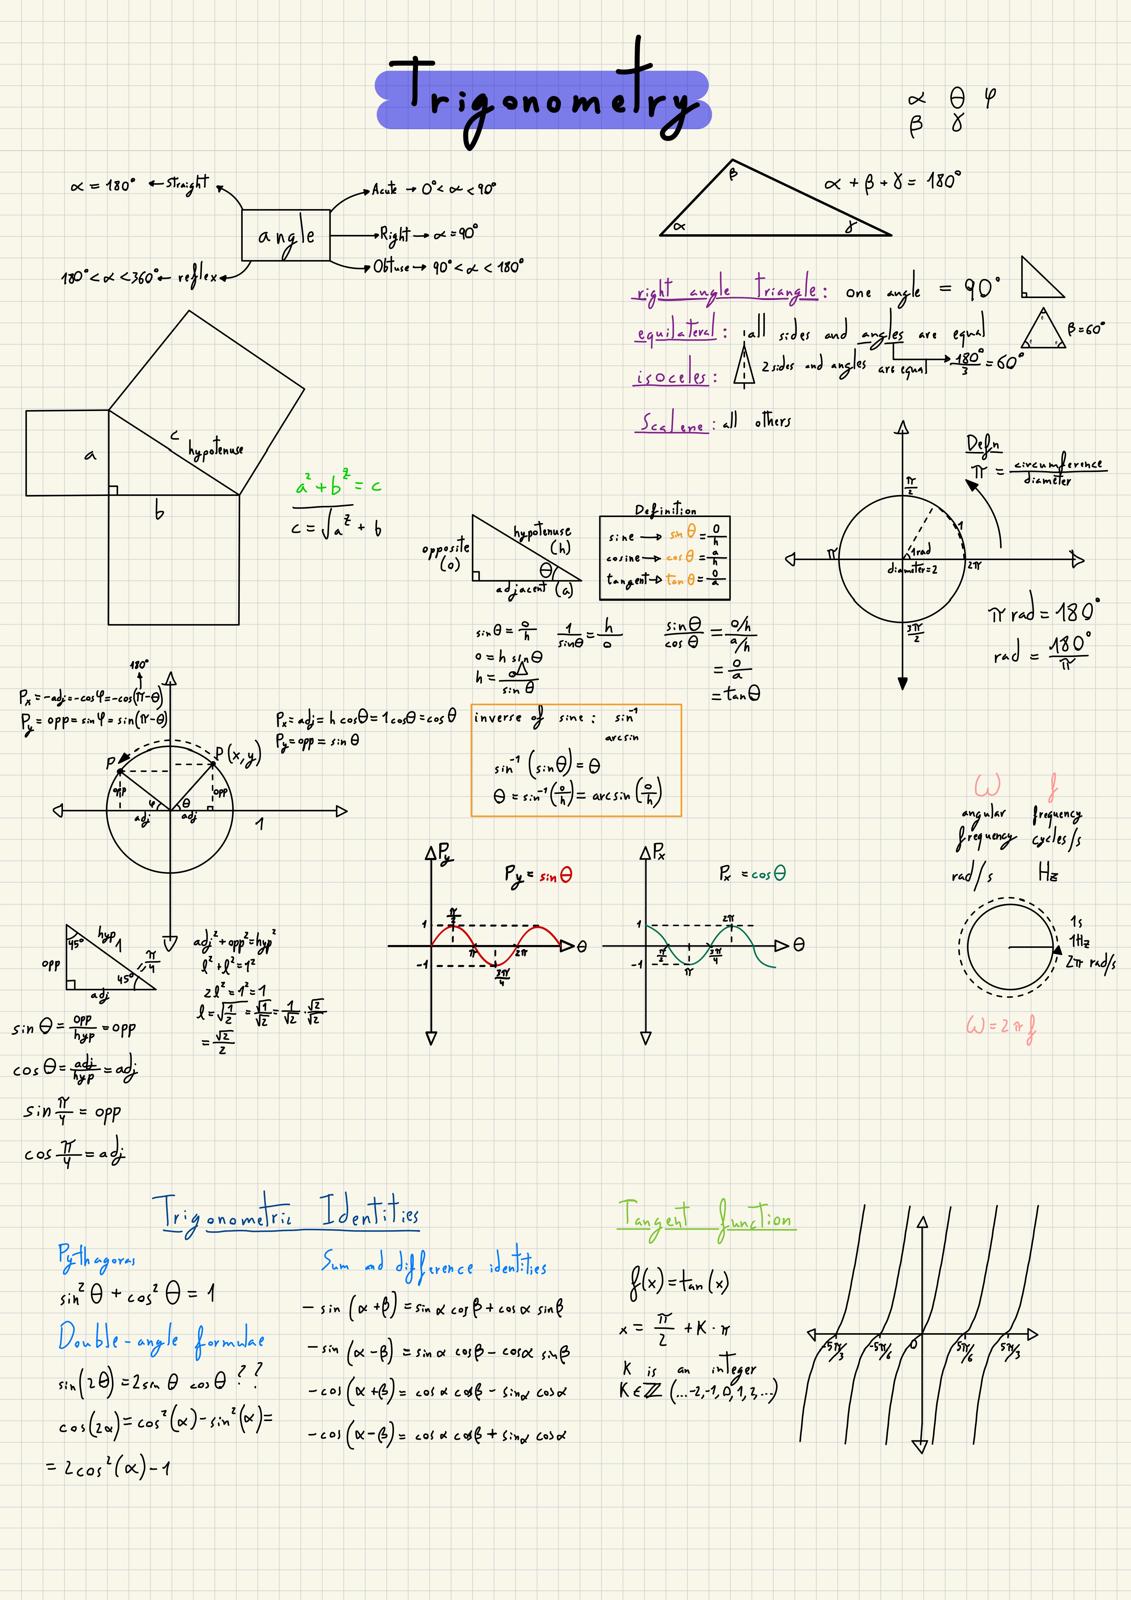 Trigonometry
α θ φ
β γ
α = 180° ← straight
Acute → 0° < α < 90°
angle
Right → α = 90°
180° < α < 360° ← reflex
Obtuse → 90° < α < 180°
β
α
γ
α + β + γ = 180°
right angle triangle: one angle = 90°
equilateral: all sides and angles are equal
β = 60°
→ 180°/3 = 60°
isoceles: 2 sides and angles are equal
Scalene: all others
a
c
hypotenuse
b
a² + b² = c
c = √a² + b
opposite
(o)
hypotenuse
(h)
θ
adjacent (a)
Definition
sine → sin θ = o/h
cosine → cos θ = a/h
tangent → tan θ = o/a
Defn
π = circumference/diameter
π/2
1
1 rad
π
diameter = 2
2π
3π/2
π rad = 180°
rad = 180°/π
sin θ = o/h
1/sin θ = h/o
sin θ/cos θ = o/h / a/h
o = h sin θ
= o/a
h = o/sin θ
= tan θ
180°
Px = -adj = -cos φ = -cos(π-θ)
Py = opp = sin φ = sin(π-θ)
Px = adj = h cos θ = 1 cos θ = cos θ
Py = opp = sin θ
P
P(x,y)
opp
φ
θ
opp
adj
adj
1
inverse of sine: sin⁻¹
arcsin
sin⁻¹ (sin θ) = θ
θ = sin⁻¹ (o/h) = arcsin (o/h)
ω f
angular frequency
frequency cycles/s
rad/s Hz
1s
1Hz
2π rad/s
ω = 2πf
Py
Py = sin θ
1
π/2
π
2π
θ
-1
3π/4
Px
Px = cos θ
1
2π
π/2
3π/4
θ
-1
π
45°
hyp 1
opp
45°
π/4
adj
adj² + opp² = hyp²
l² + l² = 1²
2l² = 1² = 1
l = √1/2 = √1/√2 = 1/√2 · √2/√2
= √2/2
sin θ = opp/hyp = opp
cos θ = adj/hyp = adj
sin π/4 = opp
cos π/4 = adj
Trigonometric Identities
Pythagoras
sin² θ + cos² θ = 1
Double-angle formulae
sin(2θ) = 2 sin θ cos θ ??
cos(2α) = cos²(α) - sin²(α) =
= 2cos²(α) - 1
Sum ad difference identities
- sin (α+β) = sin α cos β + cos α sin β
- sin (α-β) = sin α cos β - cos α sin β
- cos (α+β) = cos α cos β - sin α cos α
- cos (α-β) = cos α cos β + sin α cos α
Tangent function
f(x) = tan(x)
x = π/2 + K · π
K is an integer
K ∈ ℤ (...-2,-1,0,1,2,...)
-5π/3
-5π/6
0
5π/6
5π/3